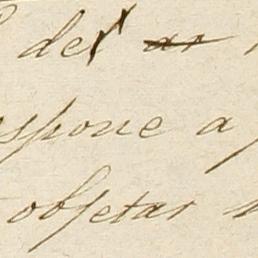 del ar
spone a
objetar